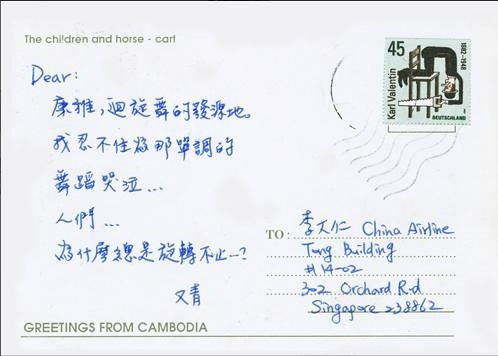 The children and horse - cart
Dear:
康雅,迴旋舞的發源地。
我忍不住為那單調的
舞蹈哭泣...
人們...
為什麼總是旋轉不止…?
又青
45
Karl Valentin
1882-1948
DEUTSCHLAND
TO:
李大仁 China Airline
Tong Building
#14-02
302 Orchard Rd
Singapore 238862
GREETINGS FROM CAMBODIA